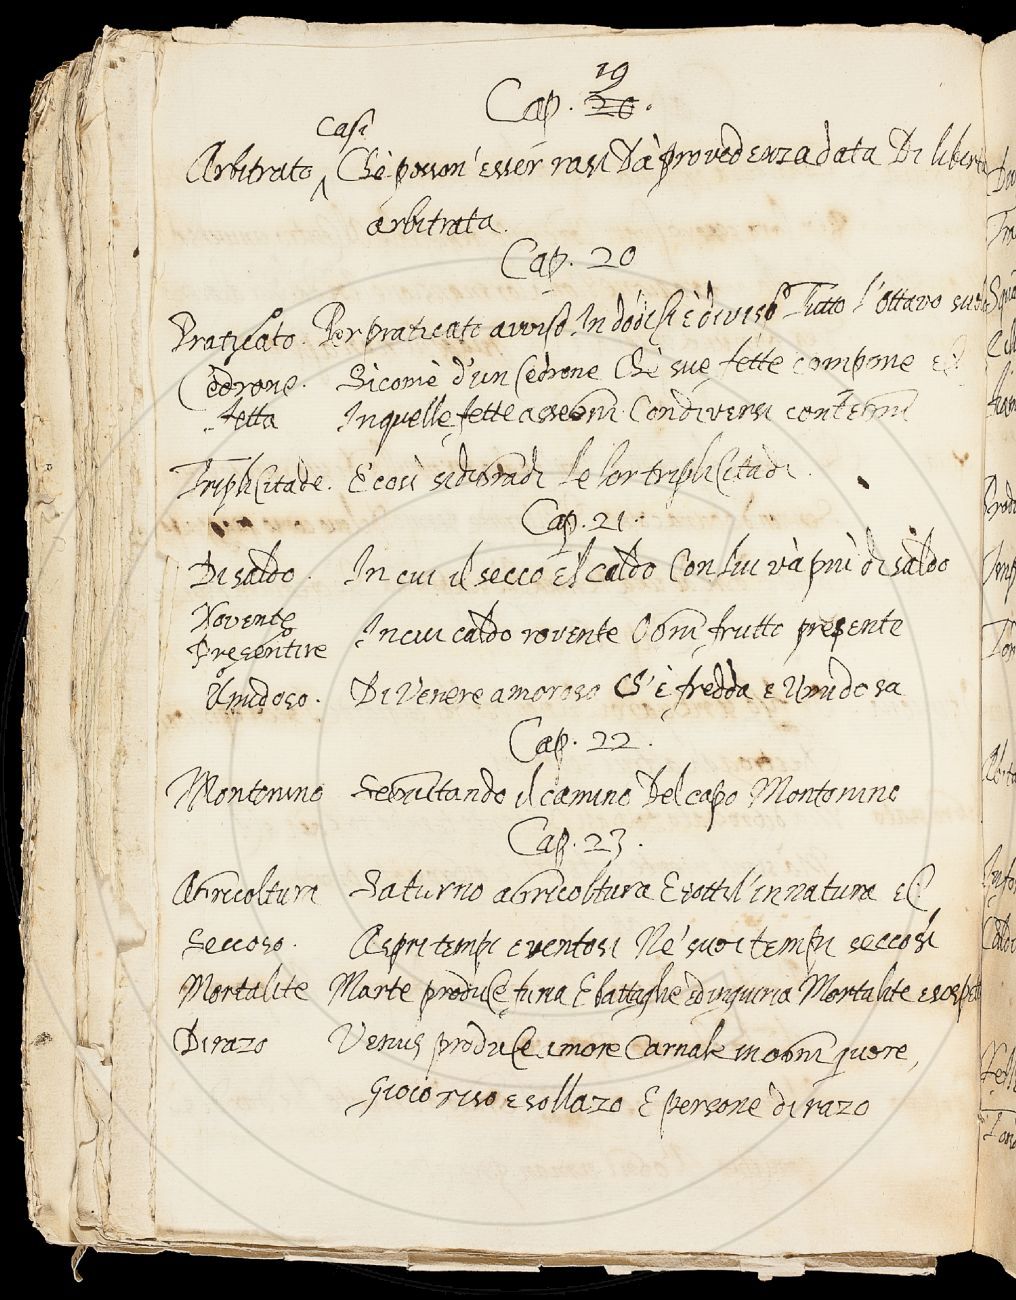 Cap. 19 20.
Casi
Arbitrato Chè posson' essér rasi Dà provedenza data Di libertà
arbitrata.
Cap. 20
Praticato. Per praticato avviso In dodisi è diviso Tutto l'ottavo
Cedrone. Sicomè d'un Cedrone Chè sue fette compone
fetta In quelle fette
Triplicitade. E così le lor triplicitadi.
Cap. 21.
Di saldo. In cui il secco El caldo Con lui và più di saldo
Rovente In cui caldo rovente Ogni frutto presente
Presentire
Umidoso. Di Venere amoroso Ch'è fredda e Umidosa
Cap. 22.
Montonino Seguitando il camino Del capo Montonino
Cap. 23.
Agricoltura Saturno agricoltura E sottil' in natura
Seccoso. Aspri tempi e ventosi Nè suoi tempi seccosi
Mortalite Marte produce furia E battaglie ed ingiuria Mortalite e
Di razo Venus produce amore Carnale in ogni quore,
Gioio riso e sollazo E persone di razo